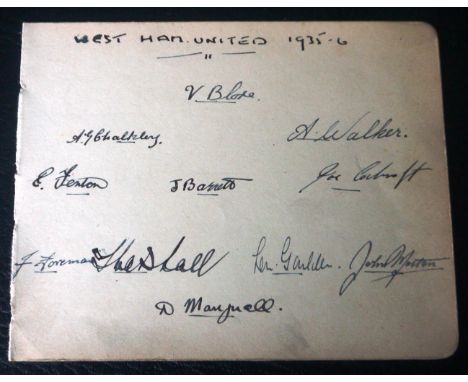 WEST HAM. UNITED 1935-6
"
V Blore.
A G Chalkley.
A. Walker.
E. Fenton
J Barrett
Joe Cockroft
J Foreman
Len. Goulden.
John Morton
D Mangnall.